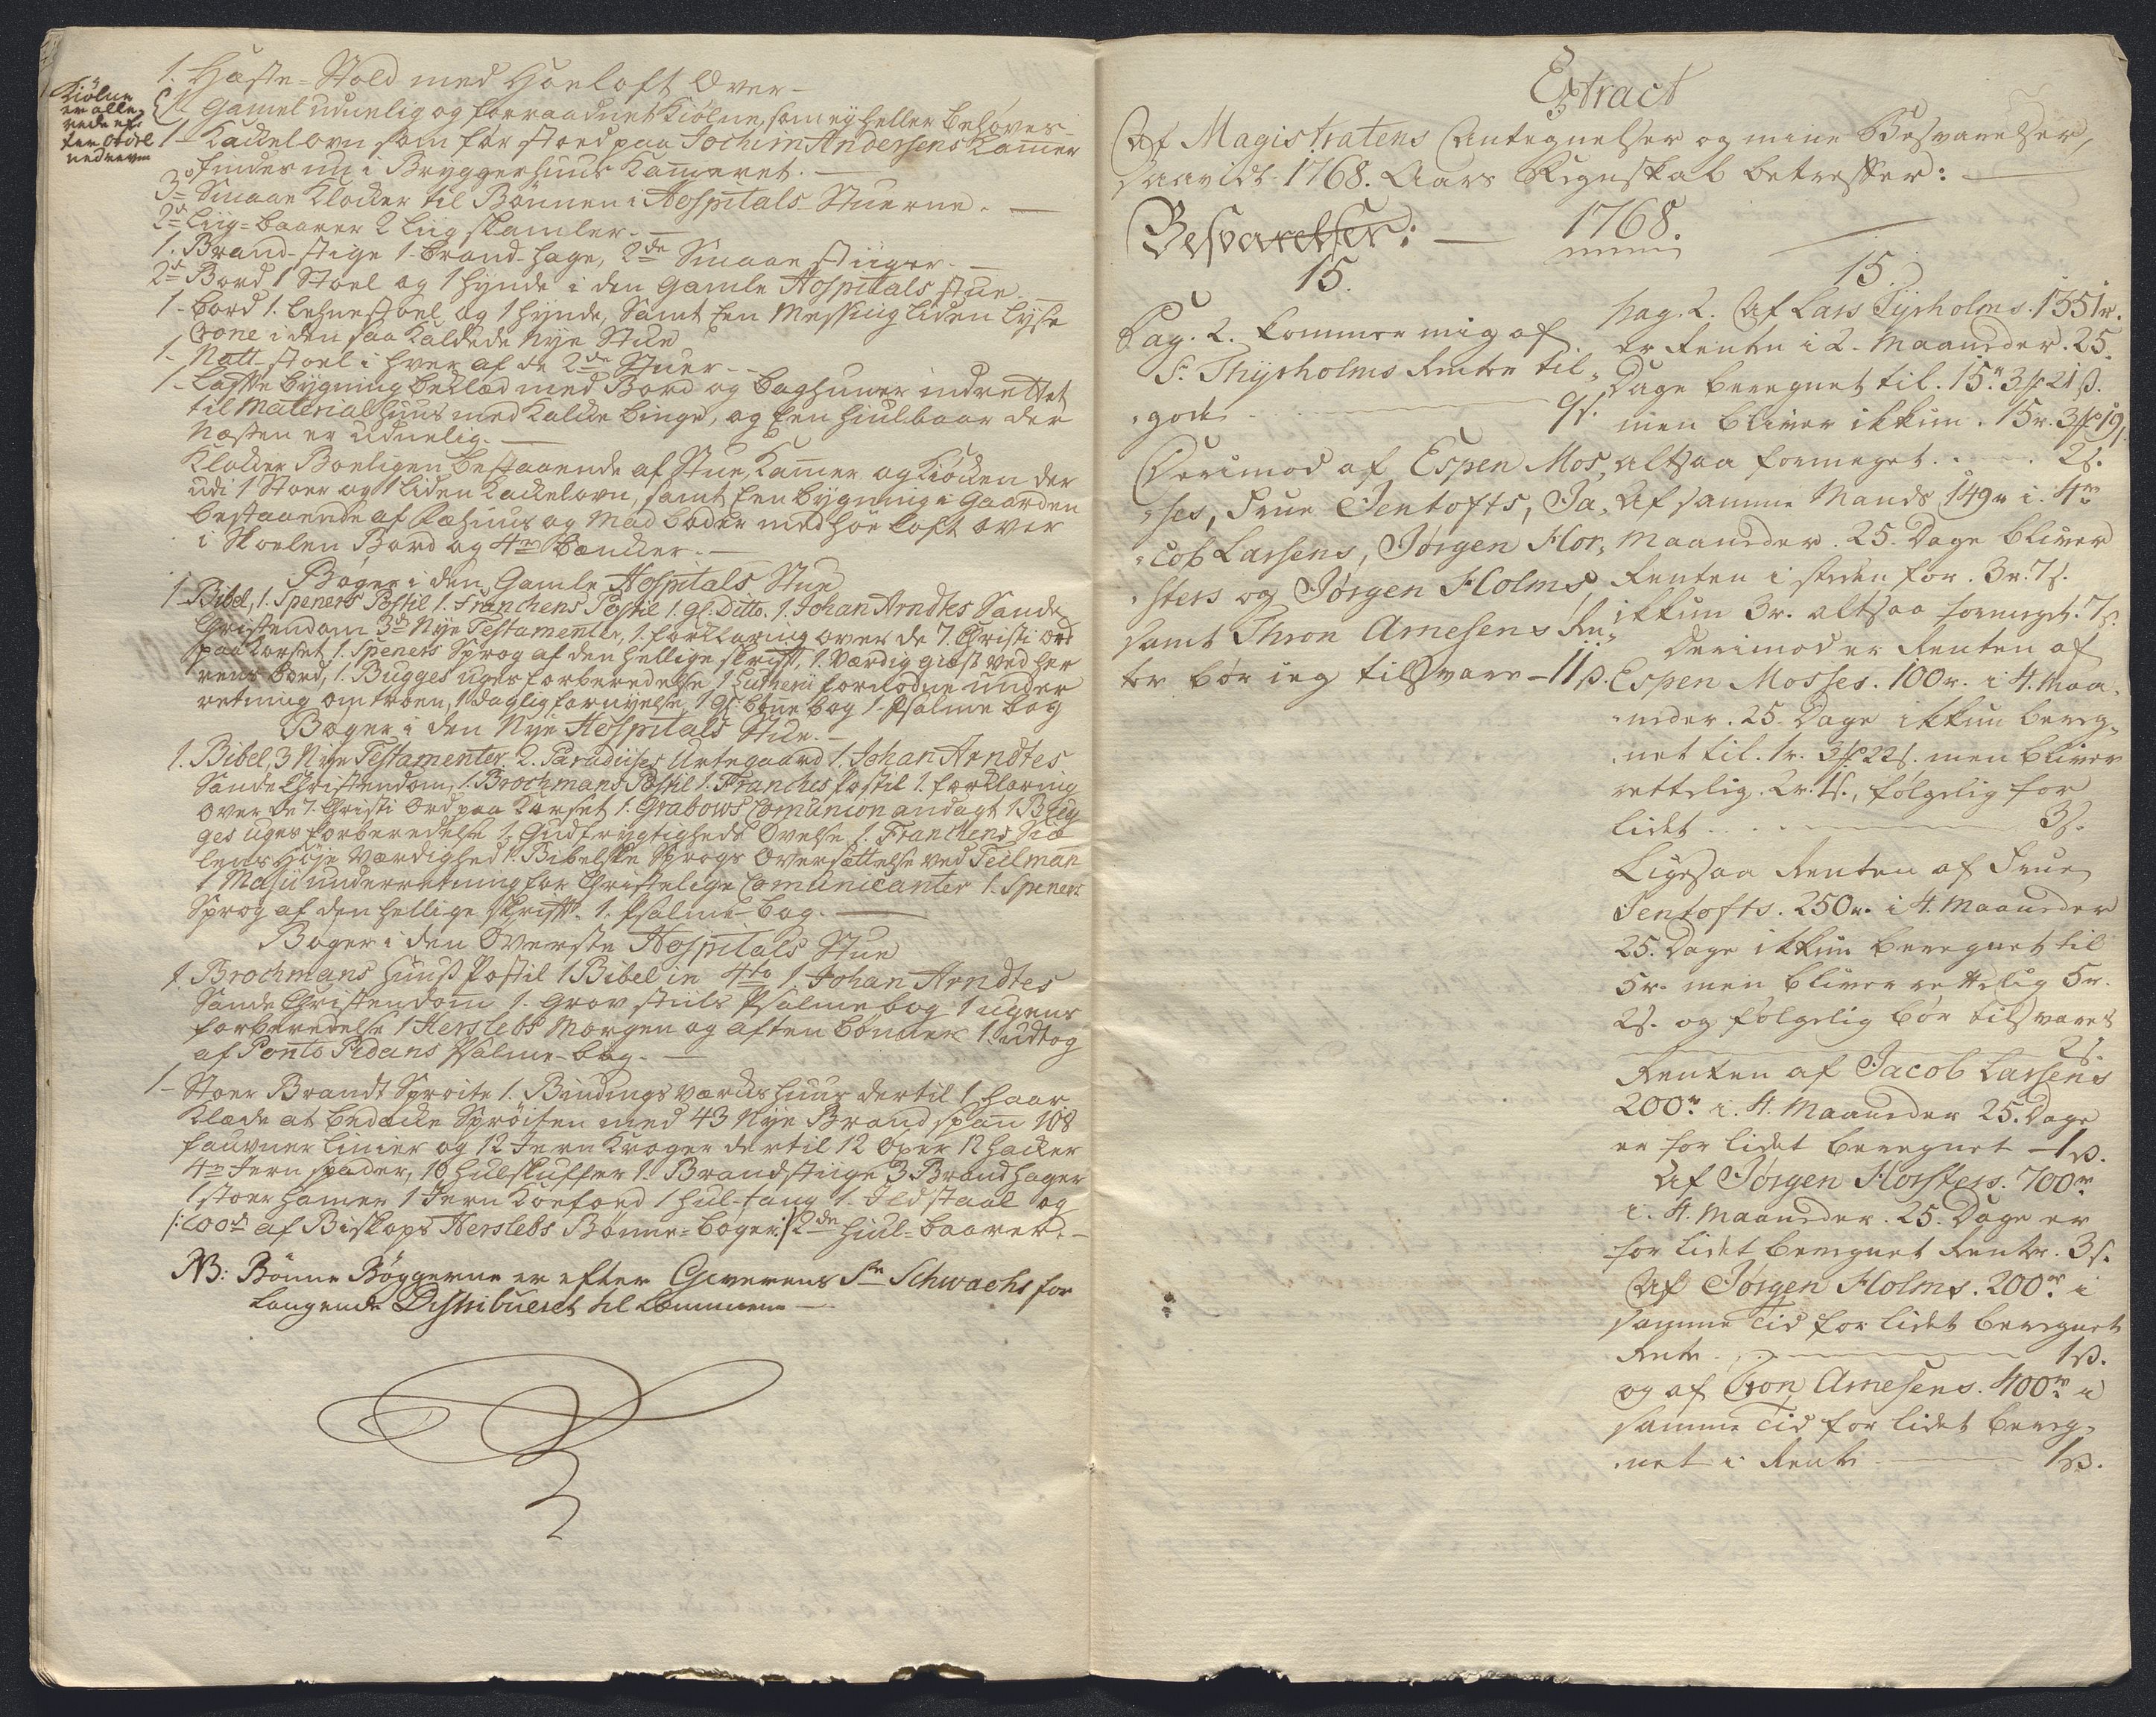 1. Heste-Stald med Høeloft Over-
Kiølne
er alle-
rede ef-
ter Ordre
nedreven
1 Gamel uduelig og forraadnet Kiølne, som ey heller behøves-
1- Kackelovn som før stoed paa Jochim Andersens Kamer
findes nu i Bryggerhuus Kameret.
3de Smaae Klocker til Bønnen i Hospitals-Stuerne.
2de Liig-baarer 2 Liig skamler.-
1. Brand-stige 1. brand-hage, 2de Smaae stiiger.-
2de Bord 1 Stoel og 1 hynde i den Gamle Hospitals stue
1- bord 1. Lehnestoel og 1 hynde, Samt Een Messing liden Lyse
Crone i den saa Kaldede Nye Stue
1- Natt-stoel i hver af de 2de Stuer-
1- Laffte bygning beklæd med Bord og baghuner indrettet
til Materialhuus med Kalcke binge, og Een hiulbaar der
Næsten er Uduelig.
Klocker Boeligen bestaaende af Stue, Kamer og Kiøcken der
udi 1 Stoer og 1 liden Kackelovn, samt Een bygning i Gaarden
bestaaende af Fæhuus og Mad boder med høe loft over
i Skoelen Bord og 4re Bæncker.-
Bøger i den Gamle Hospitals Stue
1- Bibel, 1. Speners Postil 1. Franckens Postil 1. Gl. Ditto. 1. Johan Arndtes Sande
Christendom 3de Nye Testamenter, 1. forklaring over de 7. Christi ord
paa Korset 1. Speners Sprog af den hellige skrifft, 1. Værdig giæst ved Her
rens bord, 1. Bugges uges forberedelse 1 Lutherii fornødne under
retning om troen, 1 daglig fornyelse, 1 Gl. bøne bog 1 Psalme bog
Bøger i den Nye Hospitals Stue.-
1. Bibel, 3 Nye Testamenter. 2. Paradiises Urtegaard 1. Johan Arndtes
Sande Christendom, 1. Brochmans Postil 1. Franches Postil 1. forklaring
over de 7. Christi Ord paa Korset 1. Grabows Comunion andagt 1 Bug
ges uges forberedelse 1. Gudfrygtigheds Øvelse 1. Franckens Siæ
lens Høje Værdighed 1. Bibelske Sprogs Oversættelse ved Teilman
1 Masii underretning for Christelige Comunicanter 1. Speners
Sprog af den hellige Skrifft. 1. Psalme-bog.
Bøger i den Øverste Hospitals Stue
1. Brochmans Huuß Postil 1 Bibel in 4to 1 Johan Arndtes
Sande Christendom 1. Grov stiils Psalmebog 1 ugens
forberedelse 1 Herslebs Morgen og aften bønner 1. udtog
af Ponto Pidans Psalme-bog.
1- Stoer Brandt Sprøite 1. Bindings værcks huus dertil 1 haar
Klæde at bedæcke Sprøiten med 43 Nye Brand spann 108
fauvner Linier og 12 Jern Kroger dertil 12 Øxer 12 hacker
4re Jern spader, 10 Hulskuffer 1. Brandstiige 3 Brandhager
1 stoer hamer 1 Jern Koefoed 1 hul-tang 1. Ildstaal og
/: 200de af Biskops Herslebs Bønne-bøger :/ 2de hiul-baarer.-
NB: Bønne Bøggerne er efter Geverens Sr. Schwachs for
langende Distribueret til Lemmerne
Extract
Af Magistratens Antegnelser og mine Besvarelser,
saavidt 1768. Aars Regnskab betreffer:
Besvarelser: 1768.
15.
Pag. 2. kommer mig af
Sr. Thyrholms Rente til-
gode 9s.
Derimod af Espen Mos,
ses, Frue Jentofts, Ja,
cob Larsens, Jørgen Hor,
sters og Jørgen Holms,
samt Thron Arnesens Ren-
ter bør ieg tilsvare - 11 s.
15.
pag. 2. Af Lars Tyrholms. 1351r.
er Renten i 2. Maaneder. 25.
Dage beregnet til. 15r 3 ꝑ 21 s.
men bliver ikkun. 15r. 3 ꝑ 19,
altsaa formeget. 2s.
Af samme Mands 149r i. 4re
Maaneder. 25. Dage bliver
Renten i steden for. 3r. 7s.
ikkun 3r. altsaa formeget. 7s.
Derimod er Renten af
Espen Mosses. 100r. i 4. Maa,
neder. 25. Dage ikkun bereg,
net til. 1r. 3 ꝑ 22s. men bliver
rettelig. 2r. 1s., følgelig for
lidet 3s.
Ligesaa Renten af Frue
Jentofts. 250r. i 4. Maaneder
25. Dage ikkun beregnet til
5r. men bliver rettelig 5r.
2s. og følgelig bør tilsvares
2s.
Renten af Jacob Larsens
200r. i. 4. Maaneder 25. Dage
er for lidet beregnet - 1s.
Af Jørgen Horsters. 700r
i. 4. Maaneder. 25. Dage er
for lidet beregnet Rente. 3s.
Af Jørgen Holms. 200r. i
samme Tid for lidet beregnet
Rente 1s.
og af Tron Arnesens. 400r. i
samme Tid for lidet bereg,
net i Rente 1s.